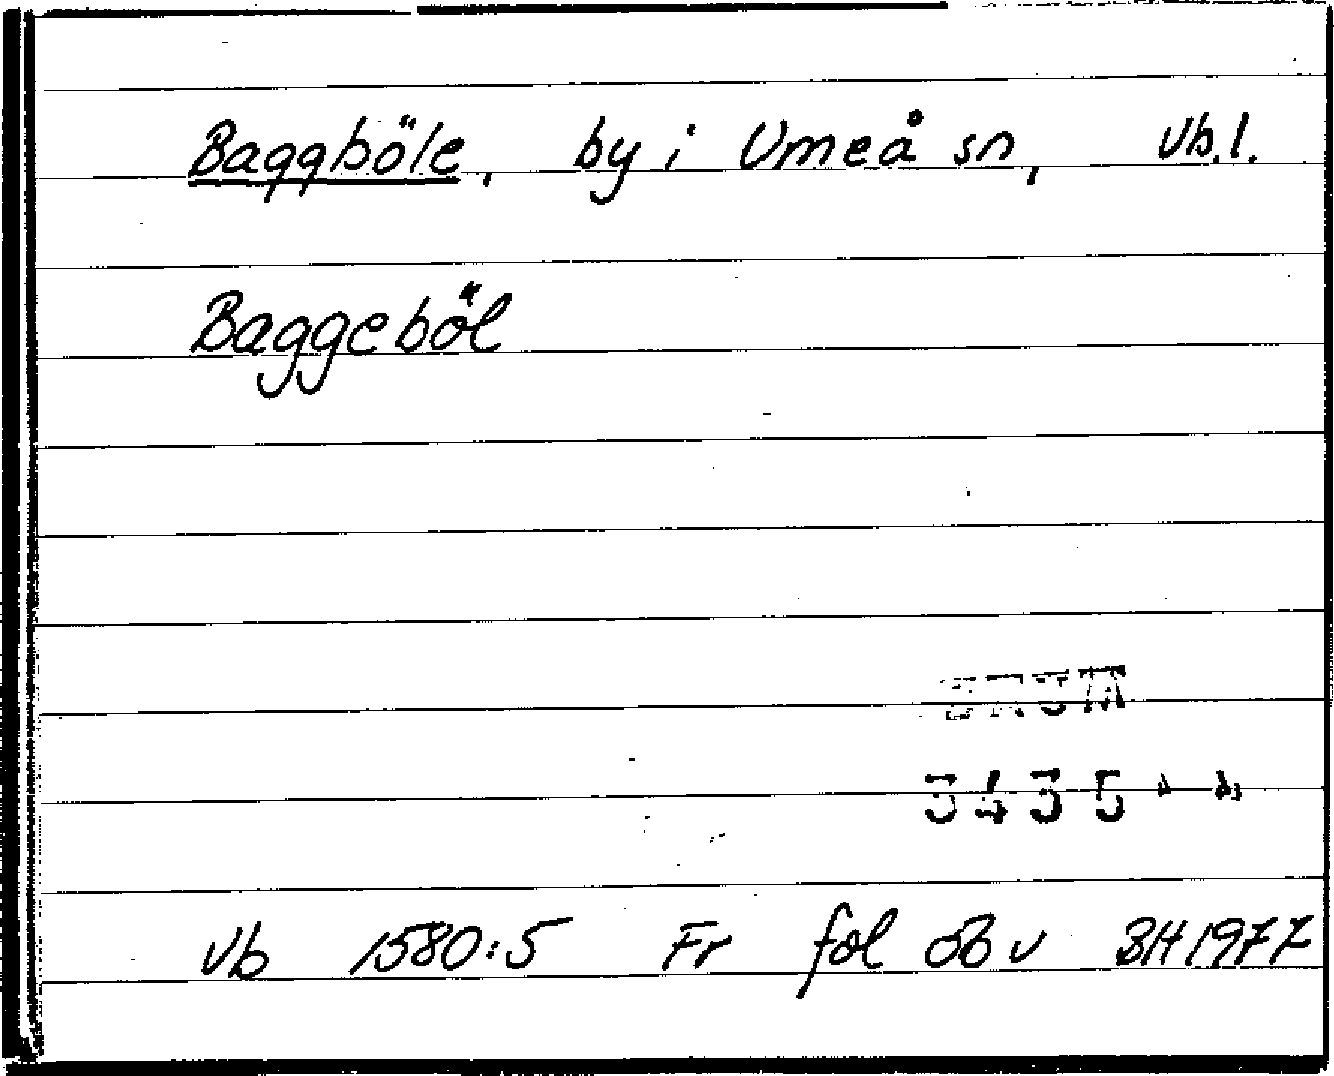 Baggböle, by i Umeå sn, Vb.l.
Baggeböl
3435
Vb 1580:5 Fr fol 86 v BH 1977